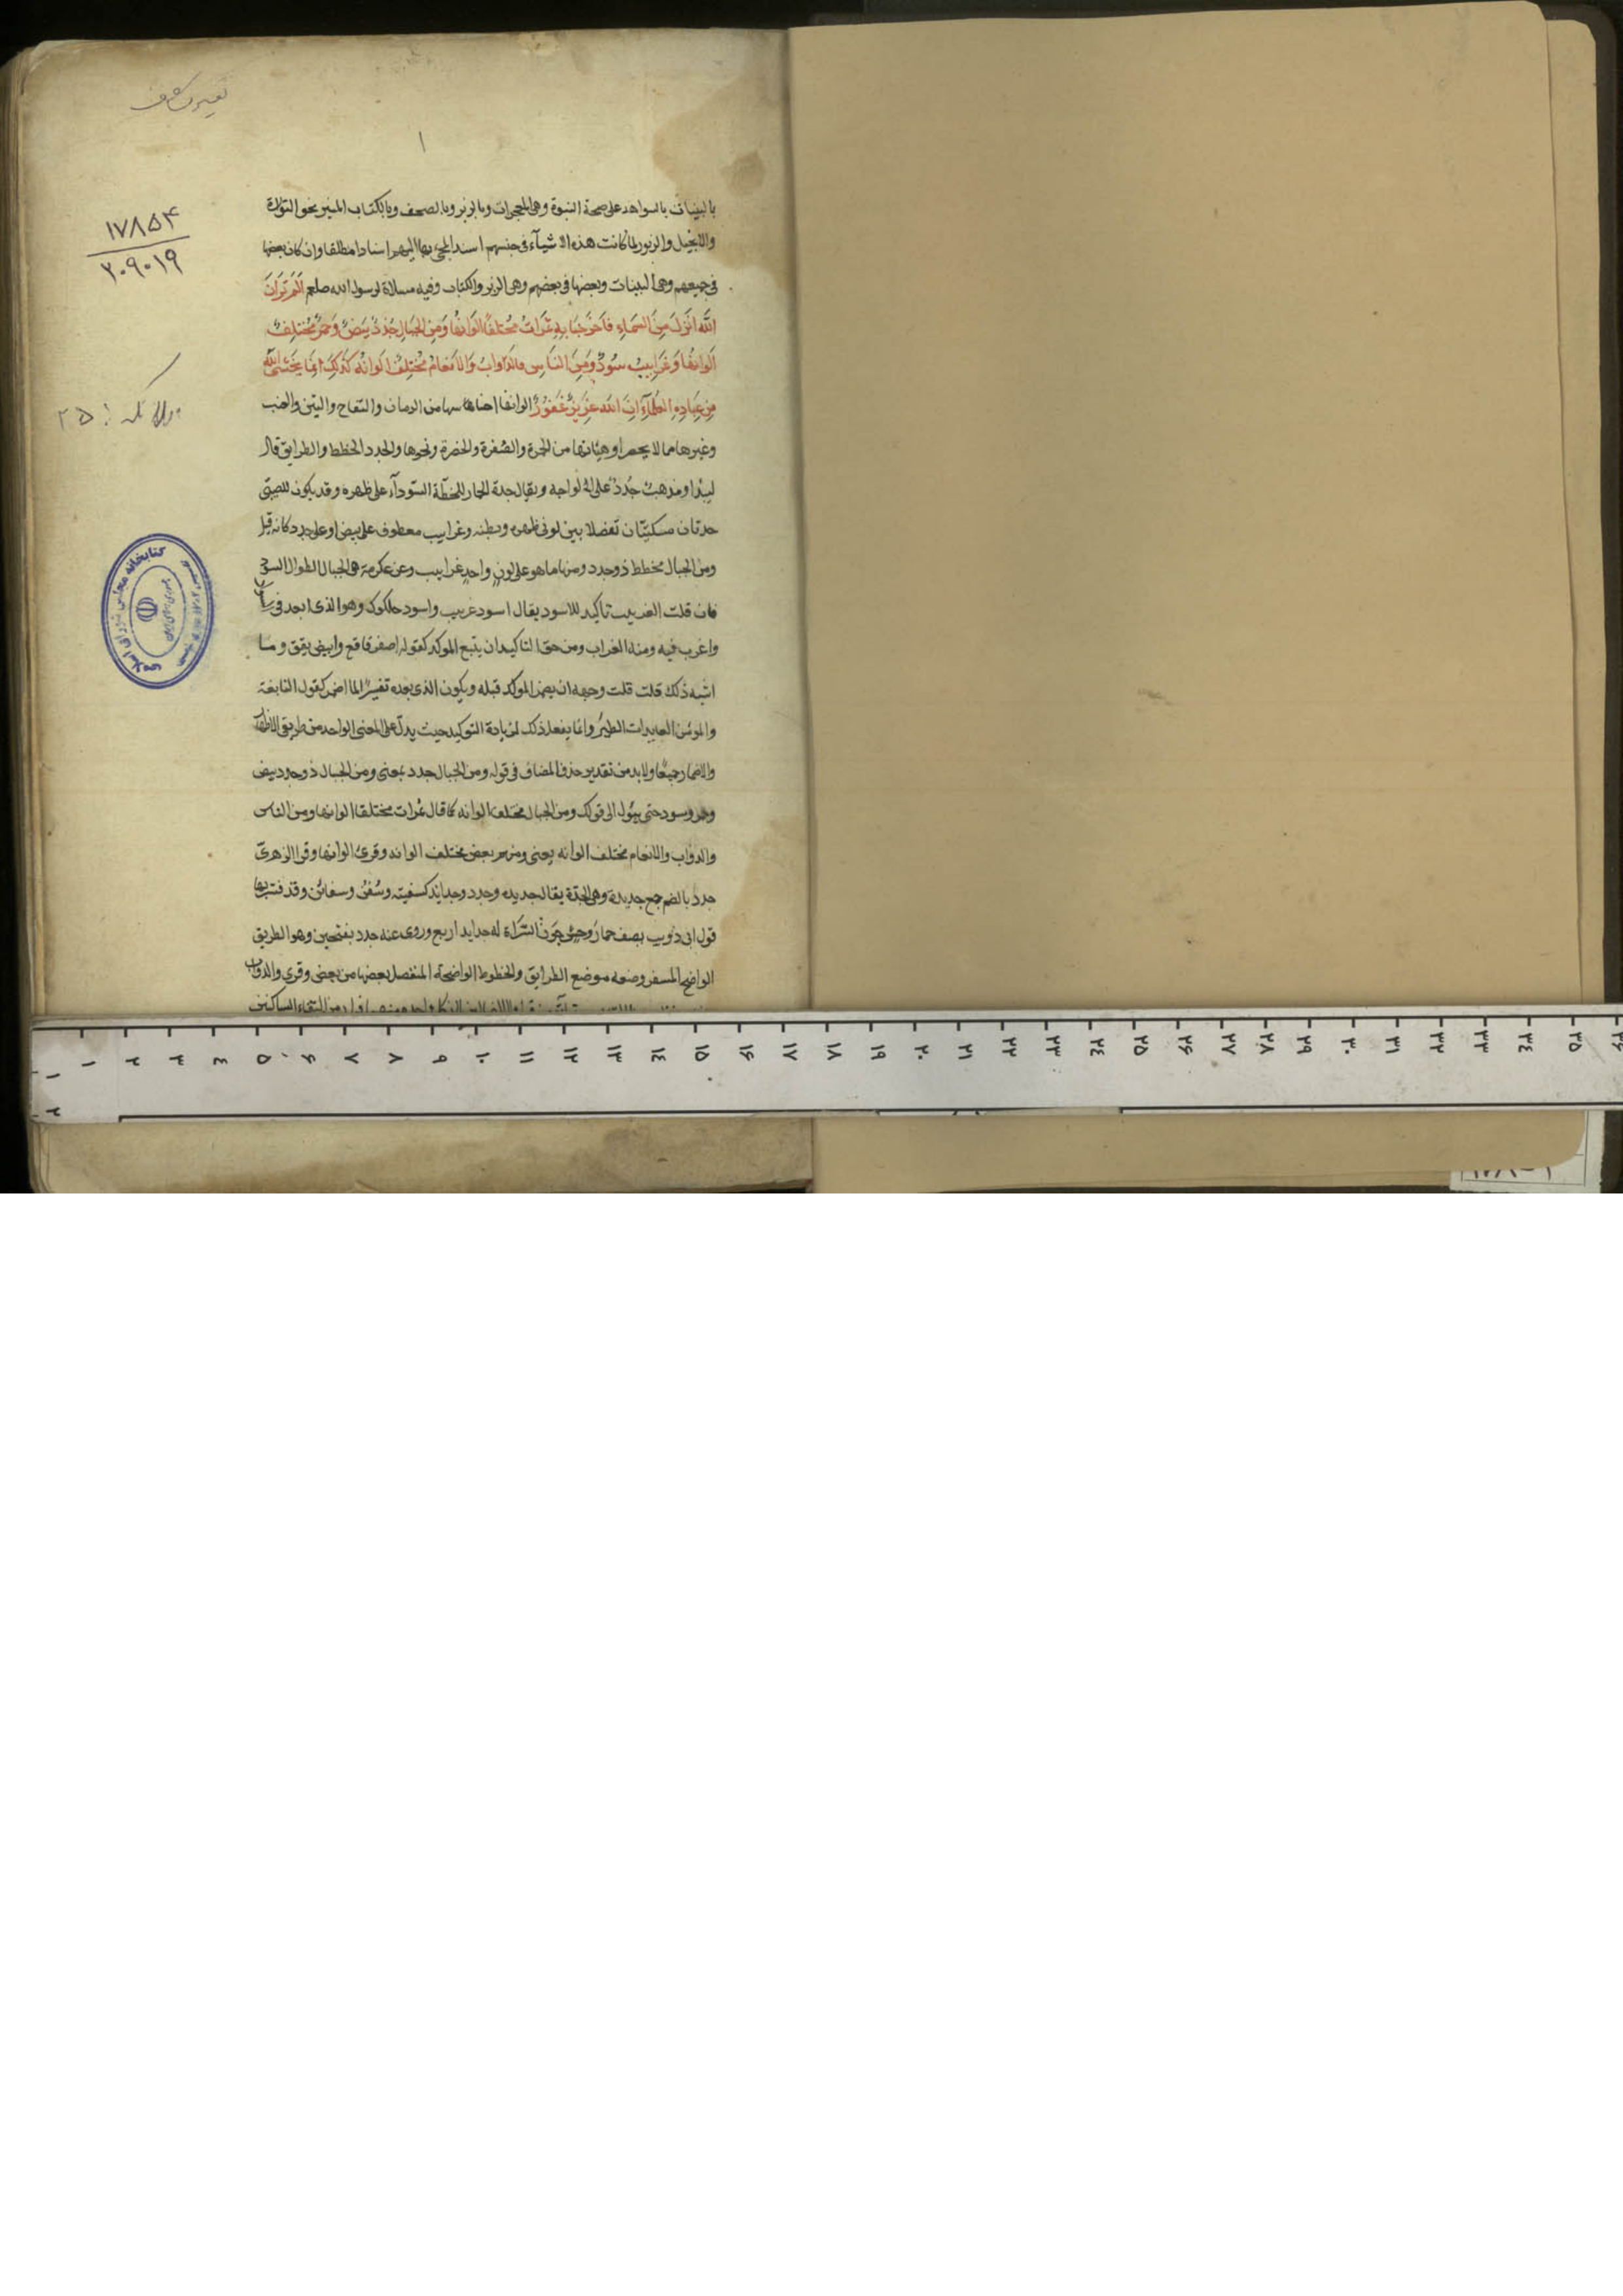 تفسیر کشاف
۱
۱۷۸۵۴
۲۰۹۰۱۹
بالبينات بالشواهد على صحة النبوة وهى المعجزات وبالزبر وبالصحف وبالكتاب المنير نحو التوراة
والانجيل والزبور لما كانت هذه الاشيآء فى جنسهم اسند المجئ بها اليهم اسنادا مطلقا وان كان بعضها
فى جميعهم وهى البينات وبعضها فى بعضهم وهى الزبر والكتاب وفيه مسلاة لرسول الله صلعم اَلَم تَرَ اَنَّ
اللّه اَنزَلَ مِنَ السَّماءِ فَاَخرَجنَا بِهِ ثَمَراتٍ مُختلفًا اَلوَانُها وَمِنَ الجِبَالِ جُدَدٌ بِيضٌ وَحُمرٌ مُختلِفٌ
اَلوانُها وَغَرابِيبُ سُودٌ وَمِنَ النَاسِ والدَّوابِ وَالاَنعَامِ مُختلِفٌ اَلوانُه كَذلِكَ اِنَّما يَخشَى اللّه
مِن عِبَادِهِ العُلَمآءُ اِنَّ اللّه عَزِيزٌ غَفُورٌ الوانها اجناسها من الرمان والتفاح والتين والعنب
وغيرها مما لا يحصر او هيئاتها من الحمرة والصُفرة والخضرة ونحوها والجدد الخطط والطرايق قال
لبيد او مذهب جُدَدٌ على الواحه ويقال جدة الحمار للخطّة السّودآء على ظهره وقد يكون للظبى
جدتان مسكيّتان تفصلان بين لونى ظهره وبطنه وغرابيب معطوف على بيض او على جدد كانه قيل
ومن الجبال مخطط ذو جدد ومنها ما هو على لونٍ واحدٍ غرابيب وعن عكرمة هى الجبال الطوال السود
فان قلت الغربيب تاكيد للاسود يقال اسود غربيب واسود حلكوك وهو الذى ابعد فى السواد
واغرب فيه ومنه الغراب ومن حق التاكيد ان يتبع الموكد كقوله اصفر فاقع وابيض يقق وما
اشبه ذلك قلت قلت وجهه ان يضمر الموكد قبله ويكون الذى بعده تفسيرًا لما اضمر كقول النابغة
والمومن العايذات الطير وانما يفعل ذلك لزيادة التوكيد حيث يدلّ على المعنى الواحد من طريقى الاظهار
والاضمار جميعًا ولابد من تقدير حذف المضاف فى قوله ومن الجبال جدد بمعنى ومن الجبال ذو جدد بيض
وحمر وسود حتى يئول الى قولك ومن الجبال مختلف الوانه كما قال ثمرات مختلفا الوانها ومن الناس
والدواب والانعام مختلف الوانه يعنى ومنهم بعض مختلف الوانه وقرئ الوانها وقرا الزهرىّ
جدد بالضم جمع جديدة وهى الجدّة يقال جديده وجدد وجدايد كسفينة وسُفُن وسفائن وقد فسّر بها
قول ابى ذويب يصف حمار وحشٍ جون السراة له جدايد اربع وروى عنه جدد بفتحين وهو الطريق
الواضح المسفر وضعه موضع الطرايق والخطوط الواضحة المنفصل بعضها من بعض وقرى والدواب
كتابخانه مجلس شورای اسلامی
۱ ۲ ۳ ٤ ۵ ۶ ۷ ۸ ۹ ۱۰ ۱۱ ۱۲ ۱۳ ۱٤ ۱۵ ۱۶ ۱۷ ۱۸ ۱۹ ۲۰ ۲۱ ۲۲ ۲۳ ۲٤ ۲۵ ۲۶ ۲۷ ۲۸ ۲۹ ۳۰ ۳۱ ۳۲ ۳۳ ۳٤ ۳۵ ۳۶
۱
۲